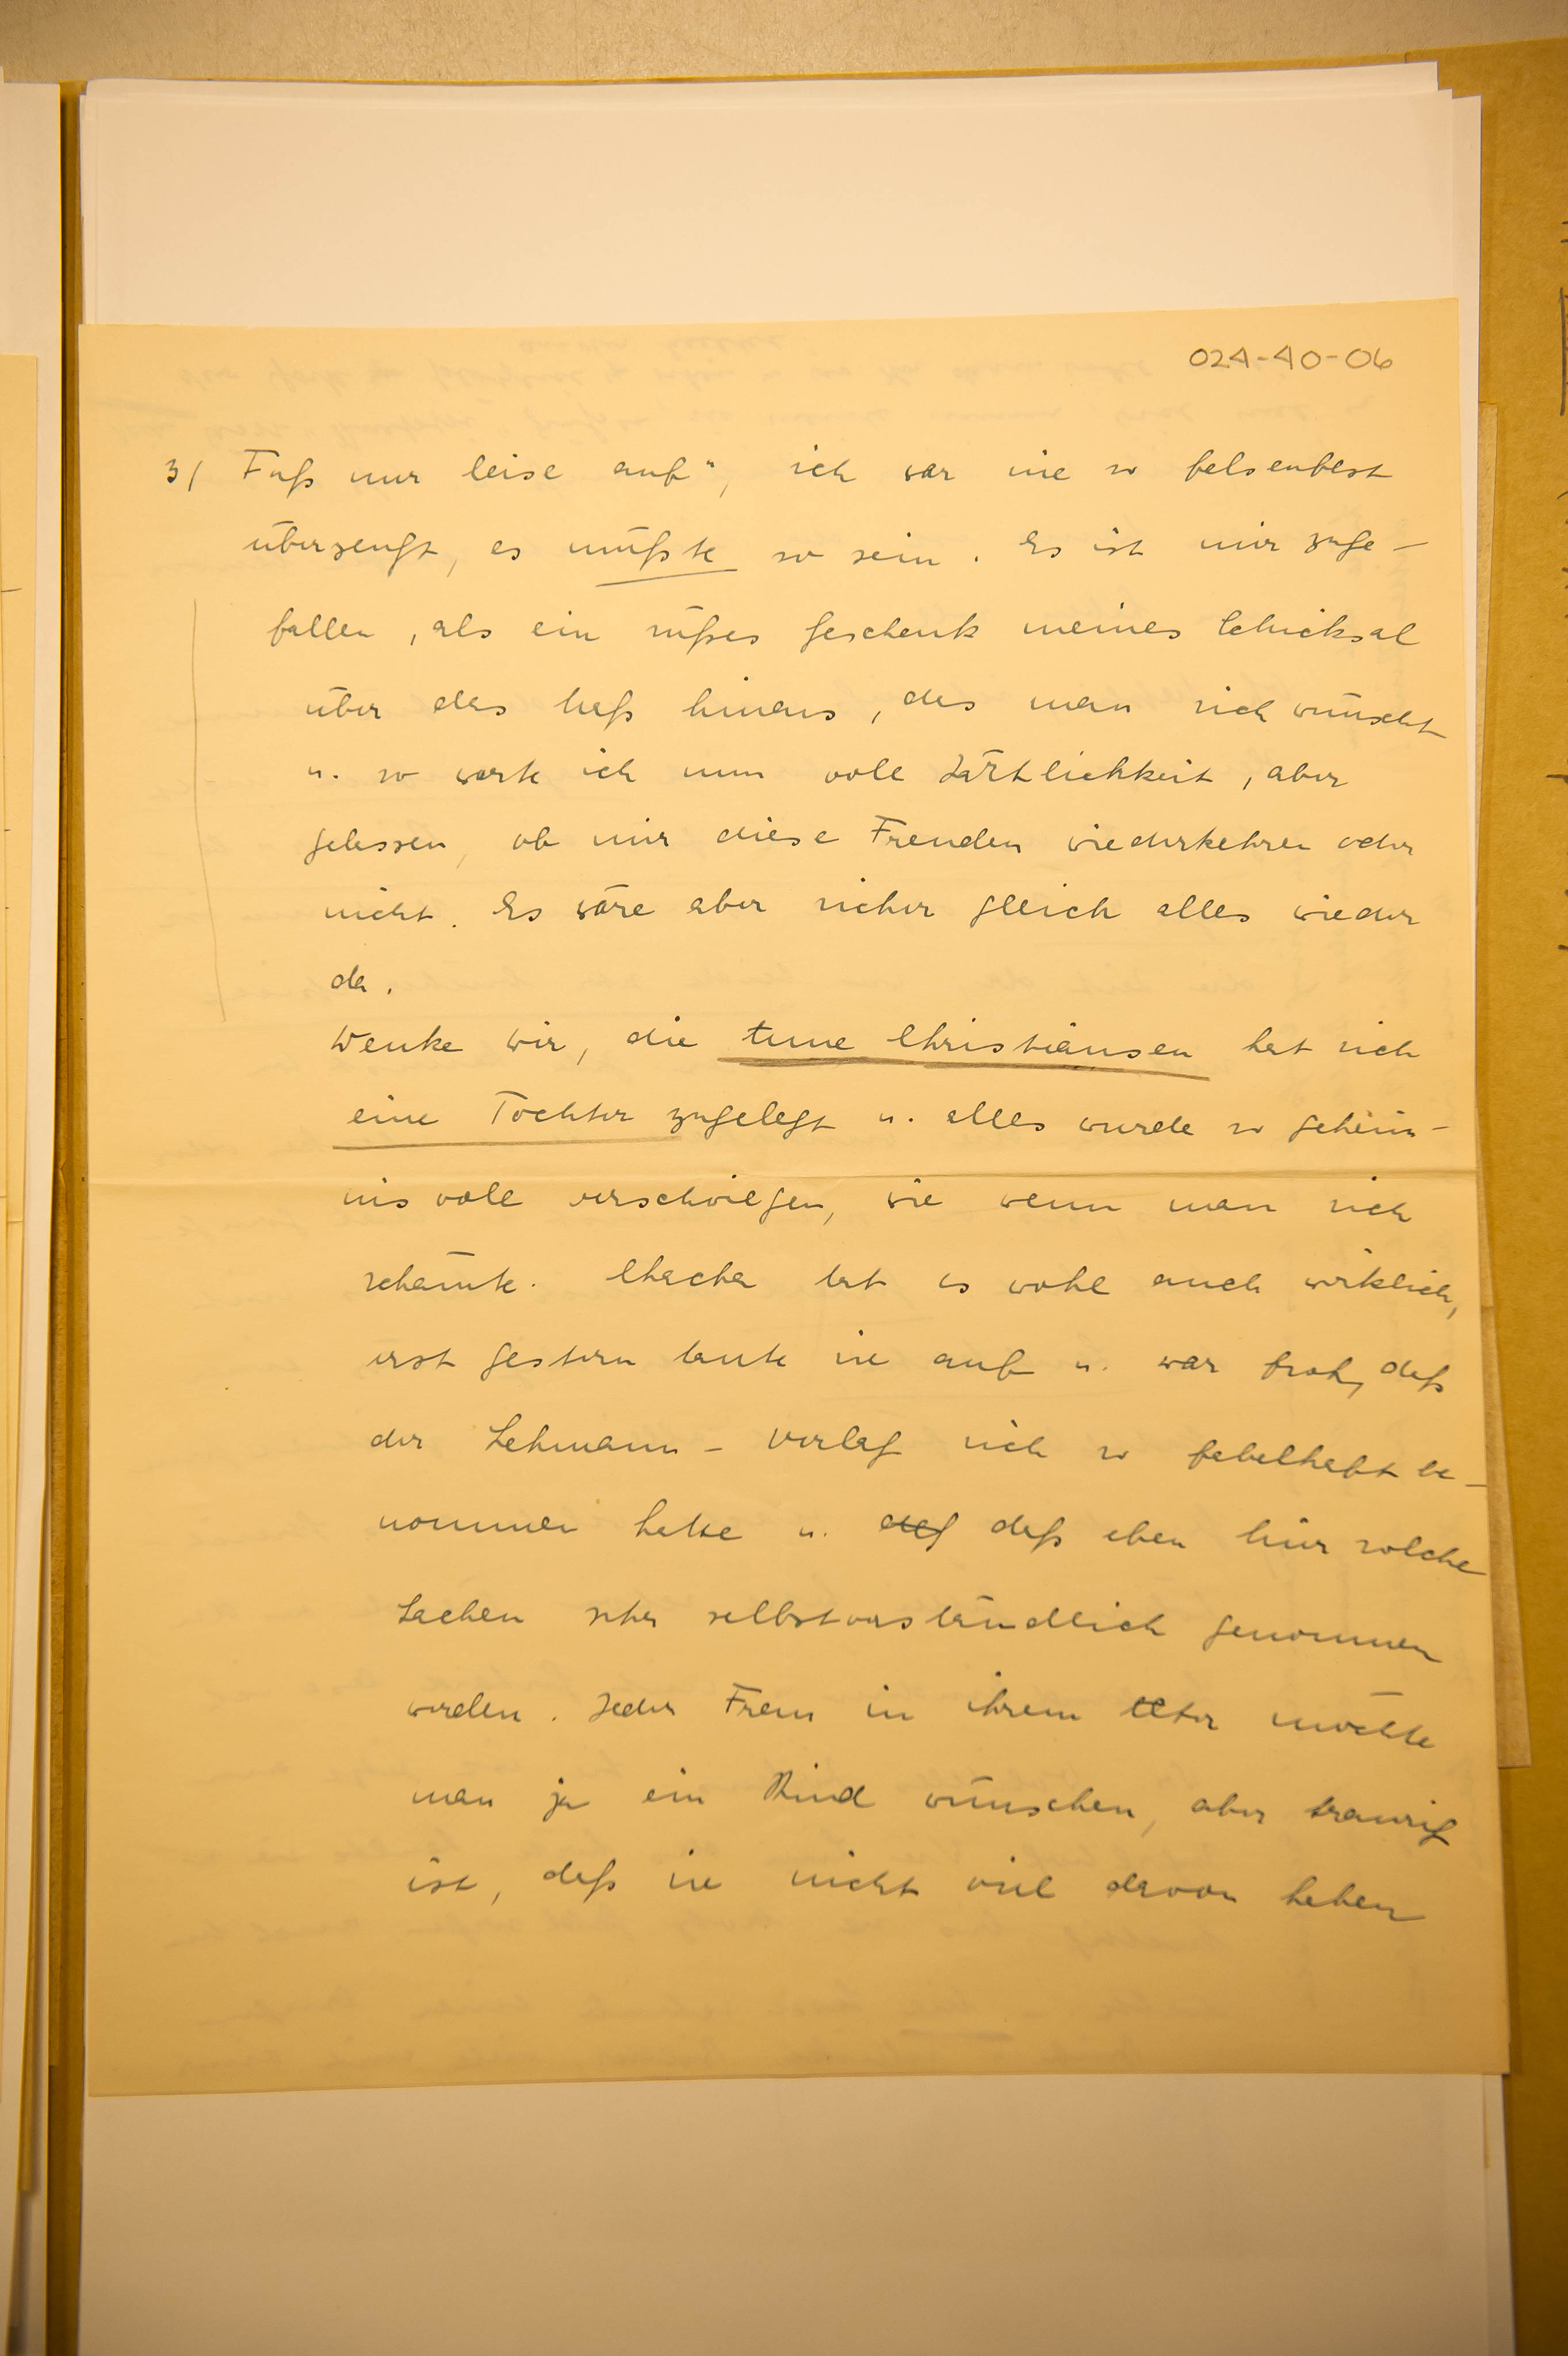 024-40-06
3/ Fuß nur leise auf", ich war nie so felsenfest
überzeugt, es müßte so sein. Es ist mir zuge-
fallen, als ein süßes Geschenk meines Schicksal
über das Maß hinaus, das man sich wünscht
u. so warte ich nun voll Zärtlichkeit, aber
gelassen, ob mir diese Freuden wiederkehren oder
nicht. Es wäre aber sicher gleich alles wieder
da.
Denke Dir, die Christiansen hat sich
eine Tochter zugelegt u. alles wurde so geheim-
nis voll verschwiegen, wie wenn man sich
schämte. Chacha tat es wohl auch wirklich,
erst gestern taute sie auf u. war froh, daß
der Lehmann-Verlag sich so fabelhaft be-
nommen hatte u. daß eben hier solche
Sachen sehr selbstverständlich genommen
werden. Jeder Frau in ihrem Alter möchte
man ja ein Kind wünschen, aber traurig
ist, daß sie nicht viel davon haben